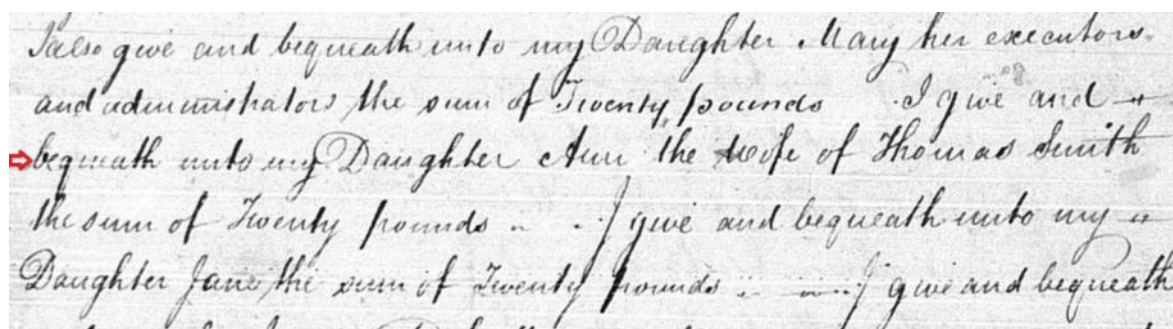 I also give and bequeath unto my Daughter Mary her executors
and administrators the sum of Twenty pounds I give and
bequeath unto my Daughter Ann the wife of Thomas Smith
the sum of Twenty pounds .. . I give and bequeath unto my
Daughter Jane the sum of Twenty pounds .. .. I give and bequeath